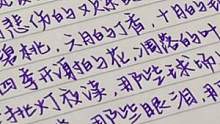 悲伤的
碧桃,六月的丁香,十月的
四季开谢的花,凋落的叶
挑灯夜读,那些球场
那些眼泪,那